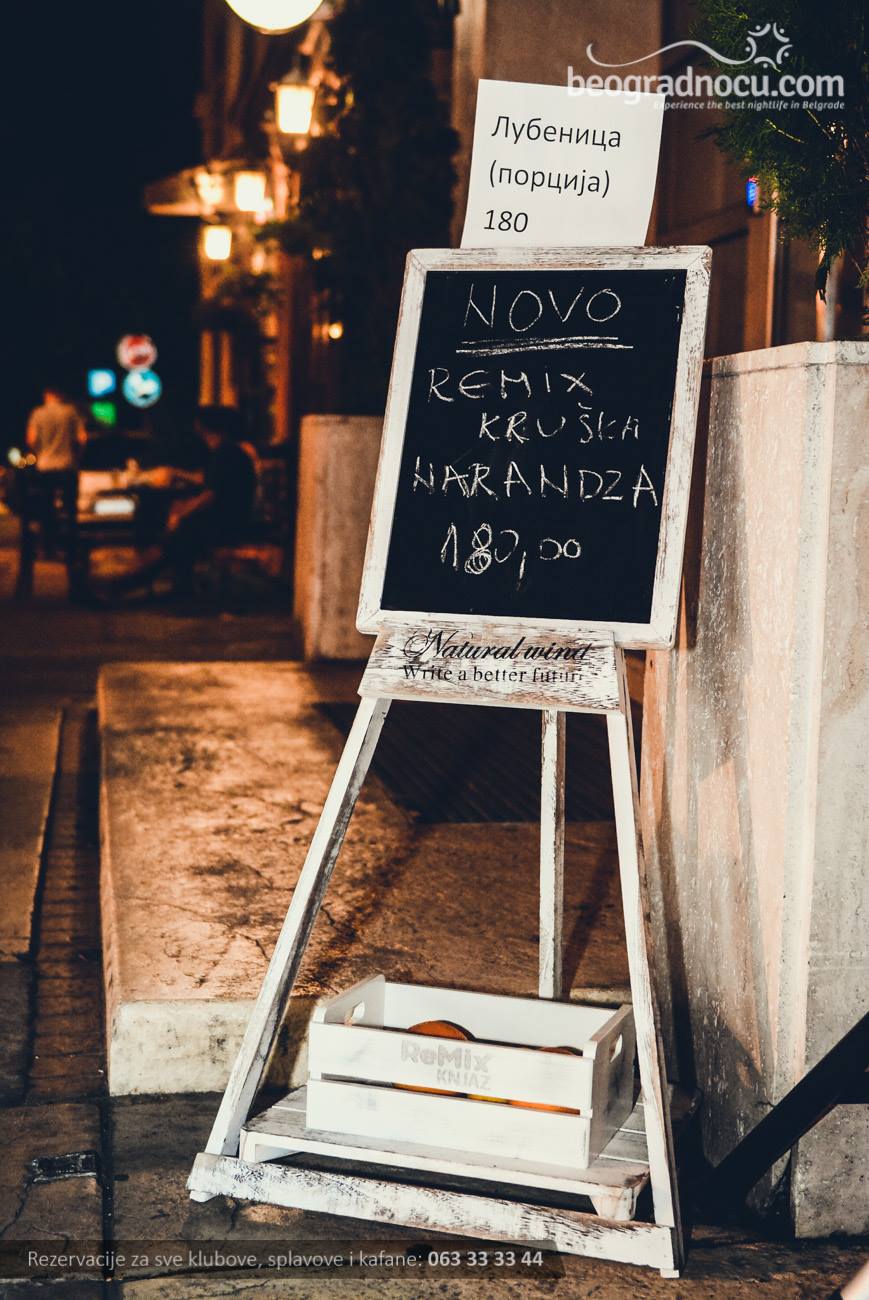 beogradnocu.com
Experience the best nightlife in Belgrade
Лубеница
(порција)
180
NOVO
REMIX
KRUŠKA
NARANDZA
180,00
Natural wind
Write a better future
ReMix
KNJAZ
Rezervacije za sve klubove, splavove i kafane: 063 33 33 44